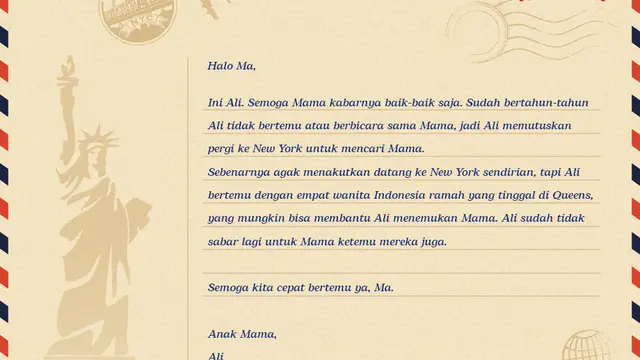 NYC
Halo Ma,
Ini Ali. Semoga Mama kabarnya baik-baik saja. Sudah bertahun-tahun
Ali tidak bertemu atau berbicara sama Mama, jadi Ali memutuskan
pergi ke New York untuk mencari Mama.
Sebenarnya agak menakutkan datang ke New York sendirian, tapi Ali
bertemu dengan empat wanita Indonesia ramah yang tinggal di Queens,
yang mungkin bisa membantu Ali menemukan Mama. Ali sudah tidak
sabar lagi untuk Mama ketemu mereka juga.
Semoga kita cepat bertemu ya, Ma.
Anak Mama,
Ali